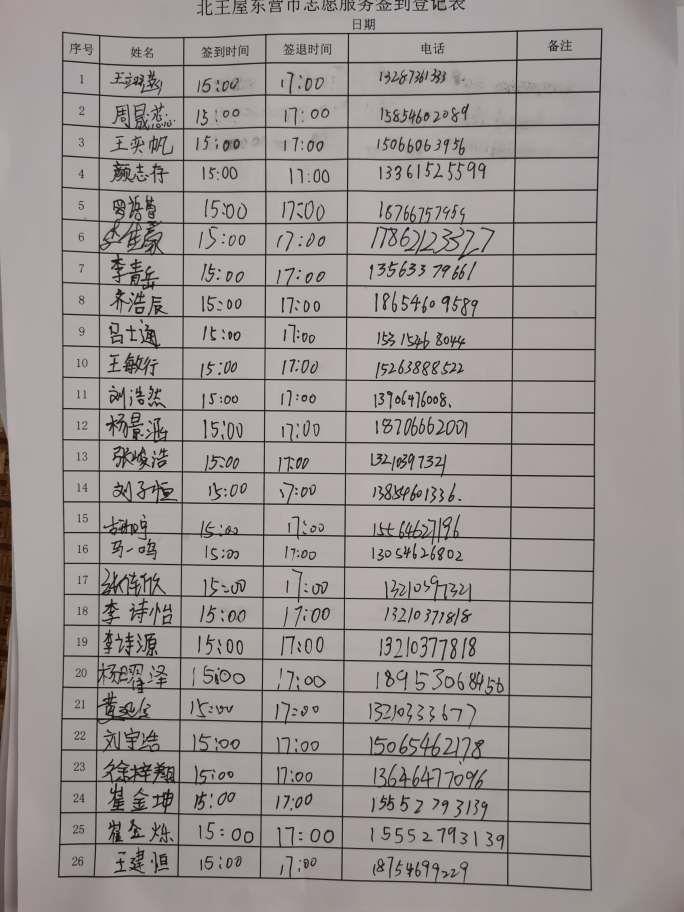 北王屋东营市志愿服务签到登记表
日期
序号 姓名 签到时间 签退时间 电话 备注
1 15:00 17:00
2 周晟蕊 15:00 17:00 15854602089
3 王奕帆 15:00 17:00 15066063956
4 颜志存 15:00 17:00 13361525599
5 15:00 17:00 18766757959
6 15:00 17:00 17862123327
7 李青岳 15:00 17:00 13563379661
8 齐浩辰 15:00 17:00 18654609589
9 吕士通 15:00 17:00 15315468044
10 王敏行 15:00 17:00 15263888522
11 刘浩然 15:00 17:00 13906476008.
12 杨景涵 15:00 17:00 18706662001
13 张峻浩 15:00 17:00 13210397321
14 刘子恒 15:00 17:00 13854601336.
15 15:00 17:00 15564627196
16 马一鸣 15:00 17:00 13054626802
17 15:00 17:00 13210397321
18 李诗怡 15:00 17:00 13210377818
19 李诗源 15:00 17:00 13210377818
20 杨曜泽 15:00 17:00 18953068456
21 15:00 17:00 13210333677
22 刘宇浩 15:00 17:00 15065462178
23 徐梓翔 15:00 17:00 13646477096
24 崔金坤 15:00 17:00 15552793139
25 崔金烁 15:00 17:00 15552793139
26 王建恒 15:00 17:00 18754699229